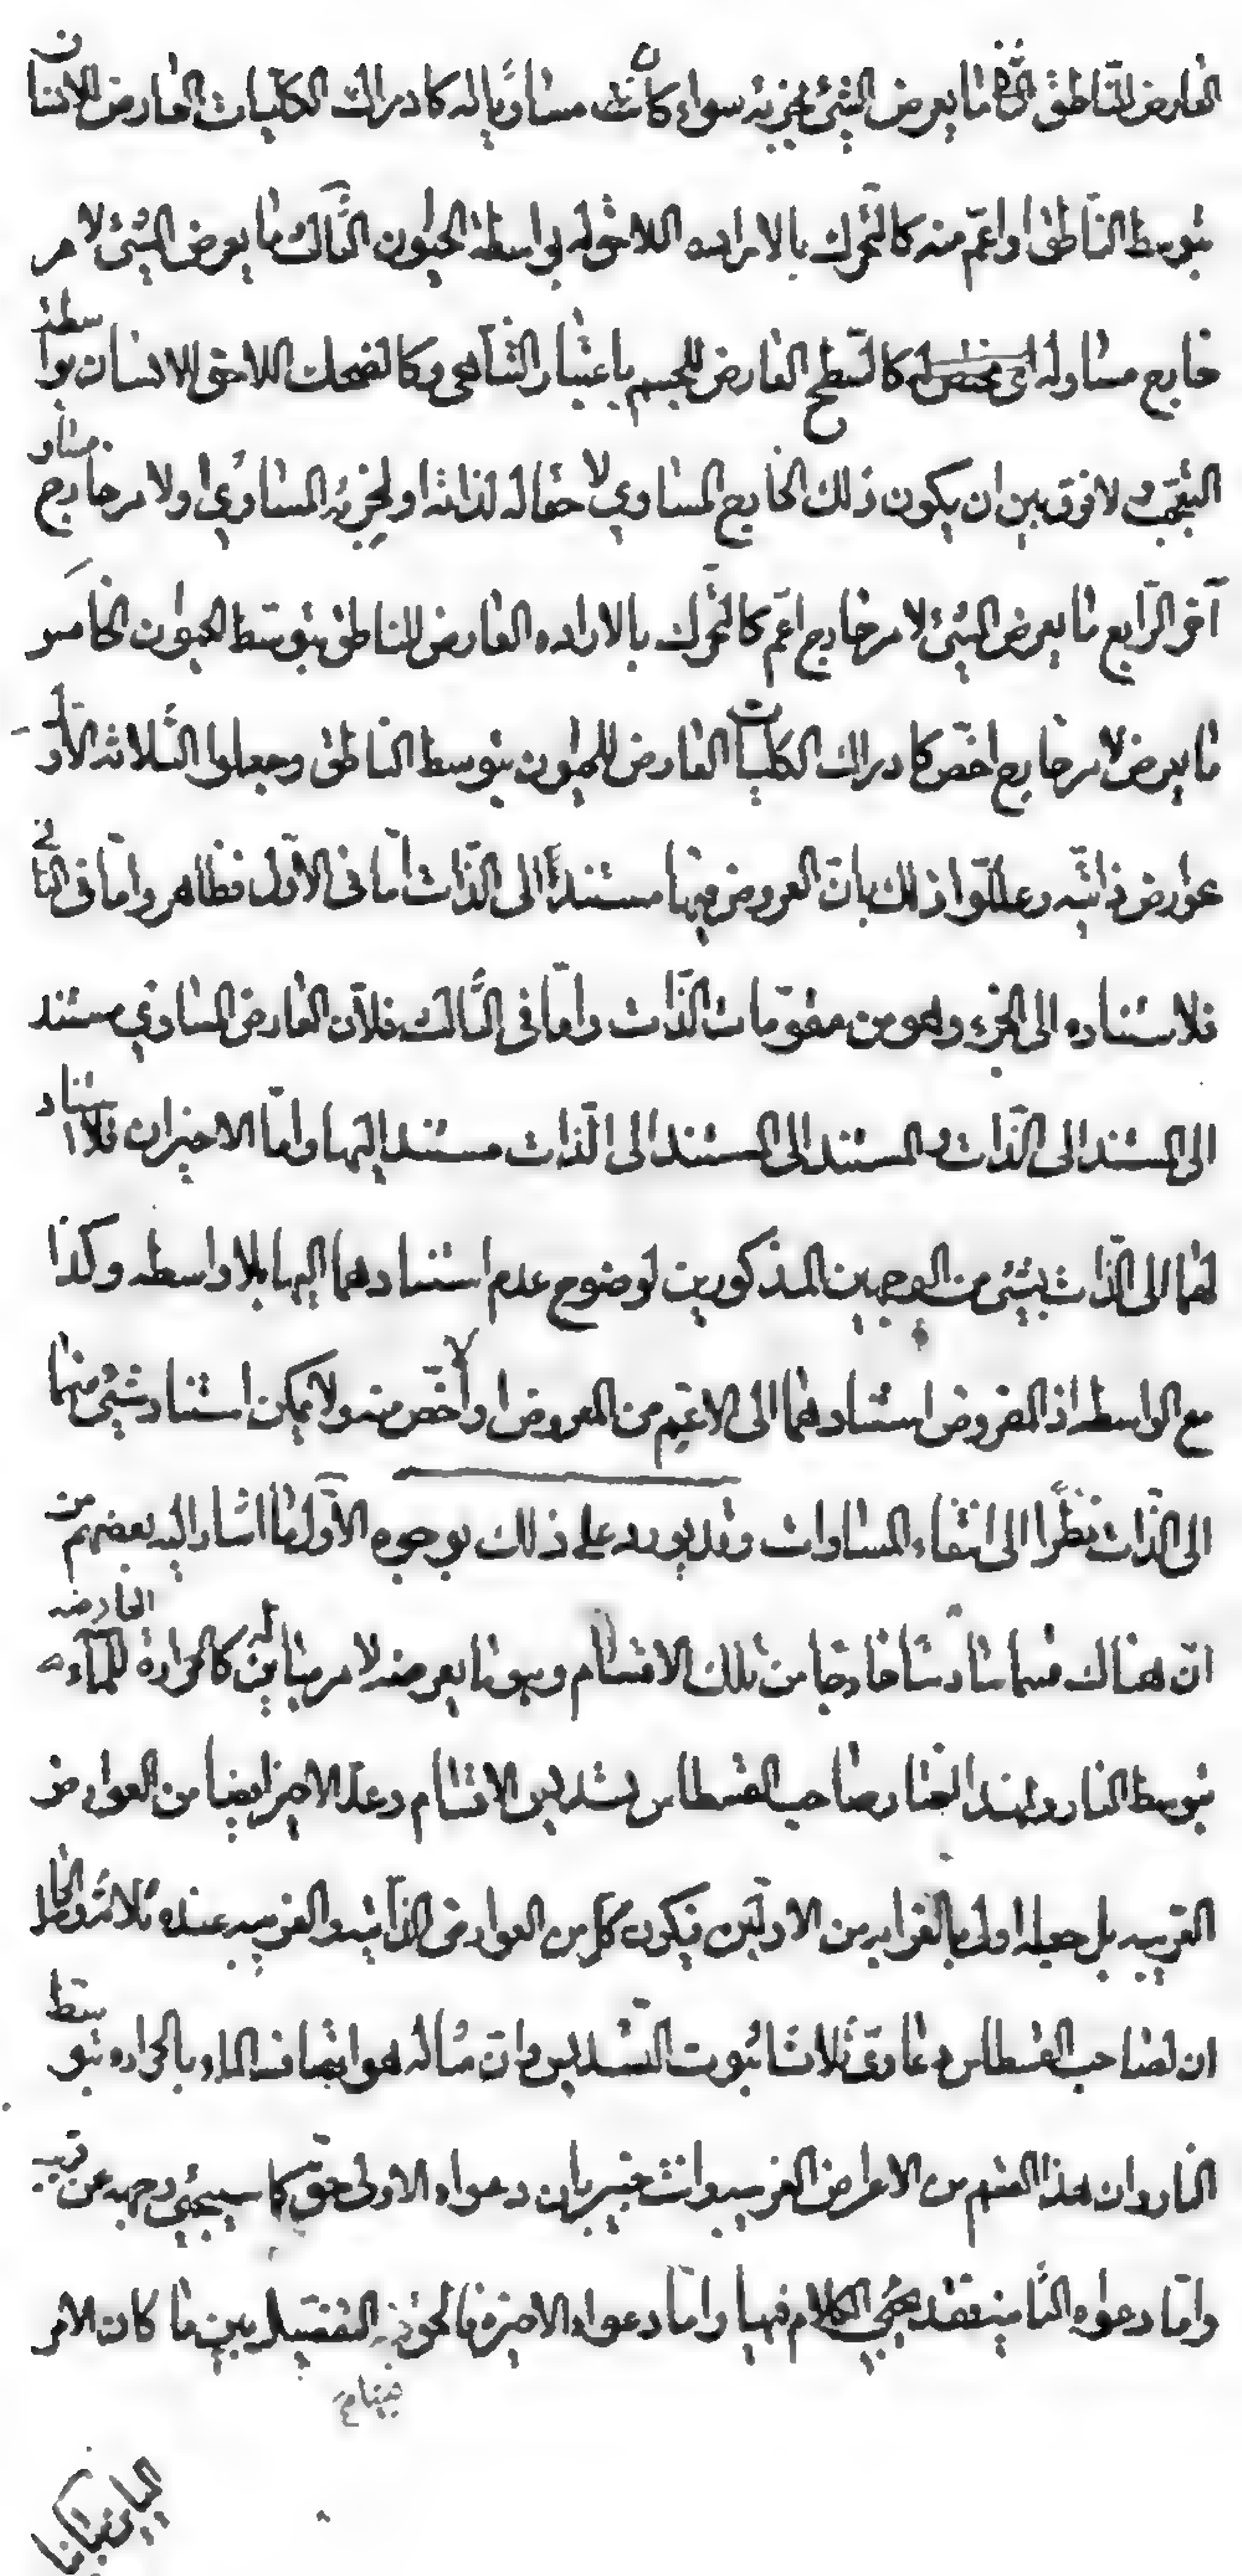 العارض للناطق الثاني ما يعرض الشيء لجزئه سواء كان مساويا له كادراك الكليات العارض للانسان
بتوسط الناطق او اعمّ منه كالتحرك بالاراده اللاحق له بواسطة الحيون الثالث ما يعرض الشيء لامر
خارج مساو له كالسّطح العارض للجسم باعتبار التناهي وكالضحك اللاحق للانسان بواسطة
التعجّب ولا فرق بين ان يكون ذلك الخارج المساوي لاحقا له لذاته او لجزئه المساوي او لامر خارج مساو
آخر الرّابع ما يعرض الشيء لامر خارج اعمّ كالتحرّك بالاراده العارض للناطق بتوسّط الحيون الخامس
ما يعرض لامر خارج اخصّ كادراك الكليات العارض للحيون بتوسط الناطق وجعلوا الثّلاثه الاُوَل
عوارض ذاتيّه وعلّلوا ذلك بانّ العروض فيها مستند الى الذّات امّا في الاوّل فظاهر وامّا في الثاني
فلاستناده الى الجزء وهو من مقوّمات الذّات وامّا في الثّالث فلانّ العارض المساوي مستند
الى المستند الى الذّات والمستند الى المستند الى الذّات مستند اليها وامّا الاخيران فلا استناد
لهما الى الذّات بشيء من الوجهين المذكورين لوضوح عدم استنادهما اليها بلا واسطه وكذا
مع الواسطه اذ المفروض استنادهما الى الاعمّ من المعروض او الاخصّ منه ولا يمكن استناد شيء منهما
الى الذّات نظرًا الى انتفاء المساوات وقد يورد على ذلك بوجوه الاوّل ما اشار اليه بعضهم من
انّ هناك قسما سادسًا خارجا من تلك الاقسام وهو ما يعرضه لامر مباين له كالحرارة العارضه للماء
بتوسط النار ولهذا اختار صاحب القسطاس تسديس الاقسام وعدّ الاخير ايضا من العوارض
الغريبه بل جعله اولى بالغرابه من الاولين فيكون كل من العوارض الذاتيه والغريبه عنده ثلاثه والحاصل
ان لصاحب القسطاس دعاوى ثلاثا ثبوت التّسديس وانّ مثاله هو اتّصاف الماء بالحراره بتوسّط
النار وان هذا القسم من الاعراض الغريبه وانت خبير بان دعواه الاولى حقّ كما سيجيئ وجهه عن قريب
وامّا دعواه الثّانيه فقد يجيئ الكلام فيها وامّا دعواه الاخيره فالحقّ فيه التفصيل بين ما كان الامر